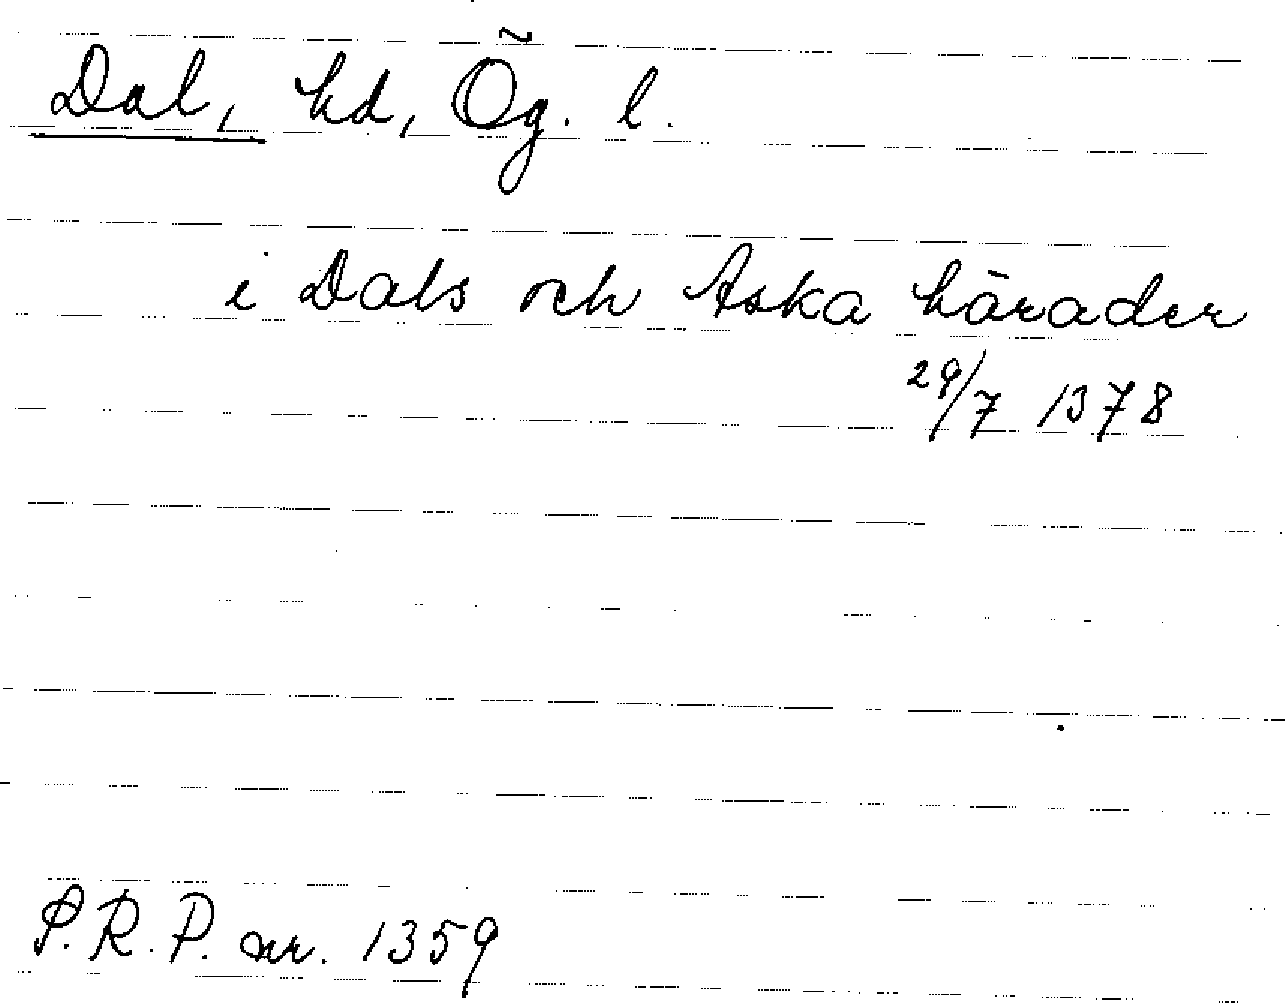 Dal, hd, Ög. l.
i Dals och Aska härader
29/7 1378
P.R.P. nr. 1359